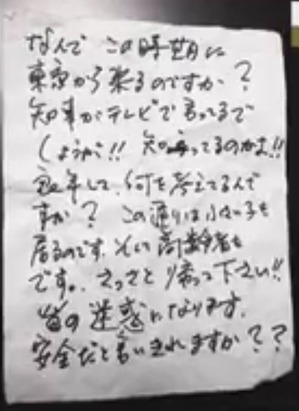 なんで この時期に
東京から来るのですか？
知事がテレビで言ってるで
しょうが!! 知ってるのかよ!!
して、何を考えてるんで
すか？ この通りは小さい子も
居るのです。そして高齢者も
です。さっさと帰って下さい!!
皆の迷惑になります。
安全だと言いきれますか？？